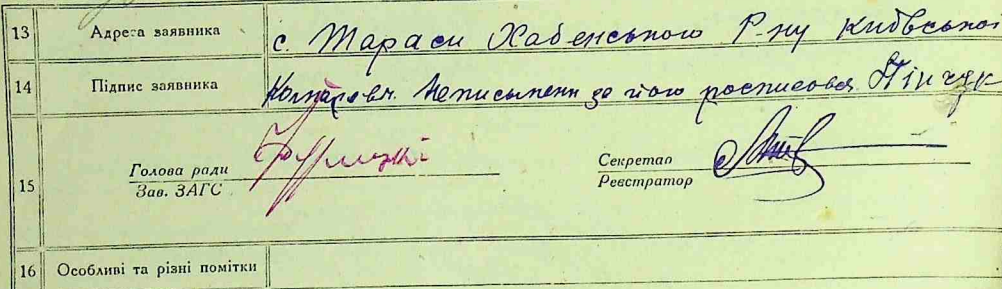 13 Адреса заявника с. Тараси Хабенського Р-ну Київської
14 Підпис заявника неписьменн за його росписовся Пінчук
15 Голова ради
Зав. ЗАГС
Секретар
Реєстратор
16 Особливі та різні помітки